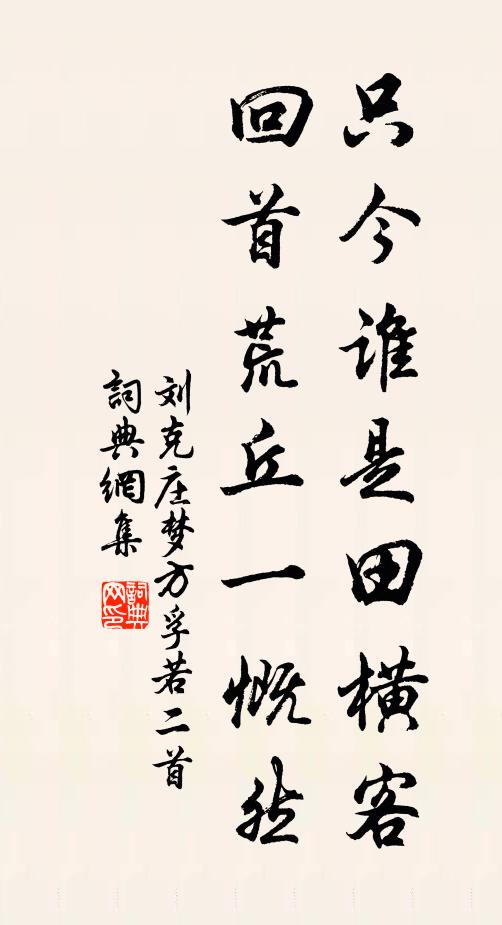 只今谁是田横客
回首荒丘一慨然
刘克庄梦方孚若二首
詞典網集
詞典
网印